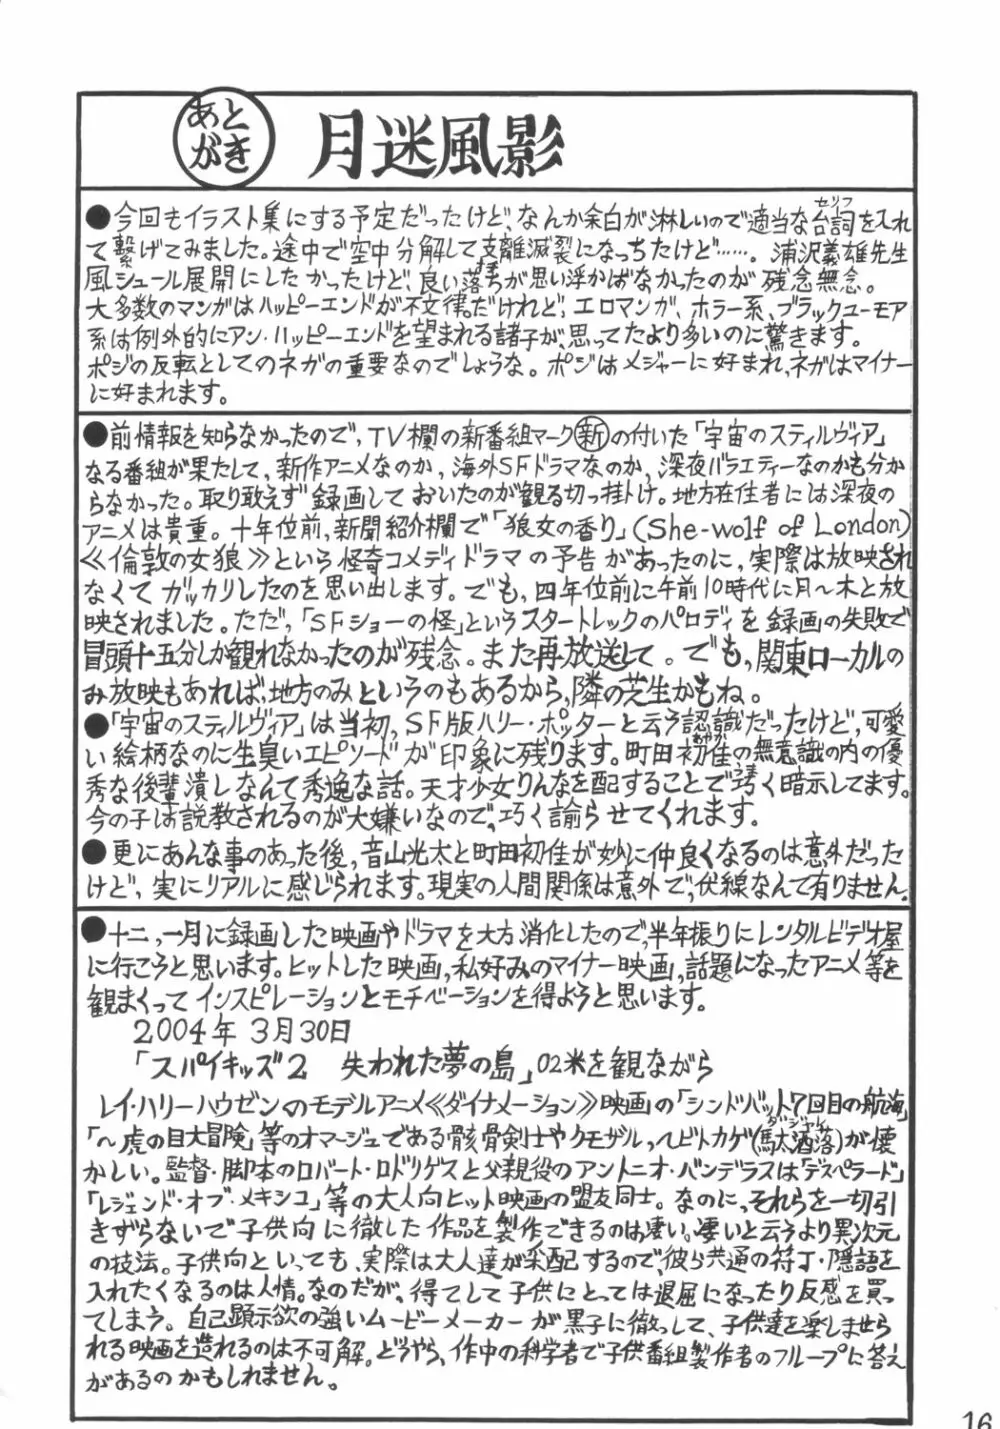 あとがき
月迷風影
●今回もイラスト集にする予定だったけど、なんか余白が淋しいので適当な台詞を入れ
セリフ
て繋げてみました。途中で空中分解して支離滅裂になっちたけど……。浦沢義雄先生
風シュール展開にしたかったけど、良い落ちが思い浮かばなかったのが残念無念。
大多数のマンガはハッピーエンドが不文律だけれど、エロマンガ、ホラー系、ブラックユーモア
系は例外的にアン・ハッピーエンドを望まれる諸子が、思ってたより多いのに驚きます。
ポジの反転としてのネガの重要なのでしょうな。ポジはメジャーに好まれ、ネガはマイナー
に好まれます。
●前情報を知らなかったので、TV欄の新番組マーク新の付いた「宇宙のスティルヴィア」
なる番組が果たして、新作アニメなのか、海外SFドラマなのか、深夜バラエティーなのかも分か
らなかった。取り敢えず録画しておいたのが観る切っ掛け。地方在住者には深夜の
アニメは貴重。十年位前、新聞紹介欄で「狼女の香り」(She-wolf of London)
≪倫敦の女狼≫という怪奇コメディドラマの予告があったのに、実際は放映され
なくてガッカリしたのを思い出します。でも、四年位前に午前10時代に月〜木と放
映されました。ただ、「SFショーの怪」というスタートレックのパロディを録画の失敗で
冒頭十五分しか観れなかったのが残念。また再放送して。でも、関東ローカルの
み放映もあれば、地方のみというのもあるから、隣の芝生かもね。
●「宇宙のスティルヴィア」は当初、SF版ハリー・ポッターと云う認識だったけど、可愛
い絵柄なのに生臭いエピソードが印象に残ります。町田初佳の無意識の内の優
あやか
秀な後輩潰しなんて秀逸な話。天才少女りんなを配することで巧く暗示してます。
うま
今の子は説教されるのが大嫌いなので、巧く諭らせてくれます。
●更にあんな事のあった後、音山光太と町田初佳が妙に仲良くなるのは意外だった
けど、実にリアルに感じられます。現実の人間関係は意外で、伏線なんて有りません。
●十二、一月に録画した映画やドラマを大方消化したので、半年振りにレンタルビデオ屋
に行こうと思います。ヒットした映画、私好みのマイナー映画、話題になったアニメ等を
観まくってインスピレーションとモチベーションを得ようと思います。
2004年3月30日
「スパイキッズ2 失われた夢の島」02米を観ながら
レイ・ハリーハウゼンのモデルアニメ≪ダイナメーション≫映画の「シンドバット7回目の航海」
「〜虎の目大冒険」等のオマージュである骸骨剣士やクモザル、ヘビトカゲ(馬太洒落)が懐
ダジャレ
かしい。監督・脚本のロバート・ロドリゲスと父親役のアントニオ・バンデラスは「デスペラード」
「レジェンド・オブ・メキシコ」等の大人向ヒット映画の盟友同士。なのに、それらを一切引
きずらないで子供向に徹した作品を製作できるのは凄い。凄いと云うより異次元
の技法。子供向といっても、実際は大人達が采配するので、彼ら共通の符丁・隠語を
入れたくなるのは人情。なのだが、得てして子供にとっては退屈になったり反感を買っ
てしまう。自己顕示欲の強いムービーメーカーが黒子に徹っして、子供達を楽しませら
れる映画を造れるのは不可解。どうやら、作中の科学者で子供番組製作者のフループに答え
があるのかもしれません。
16